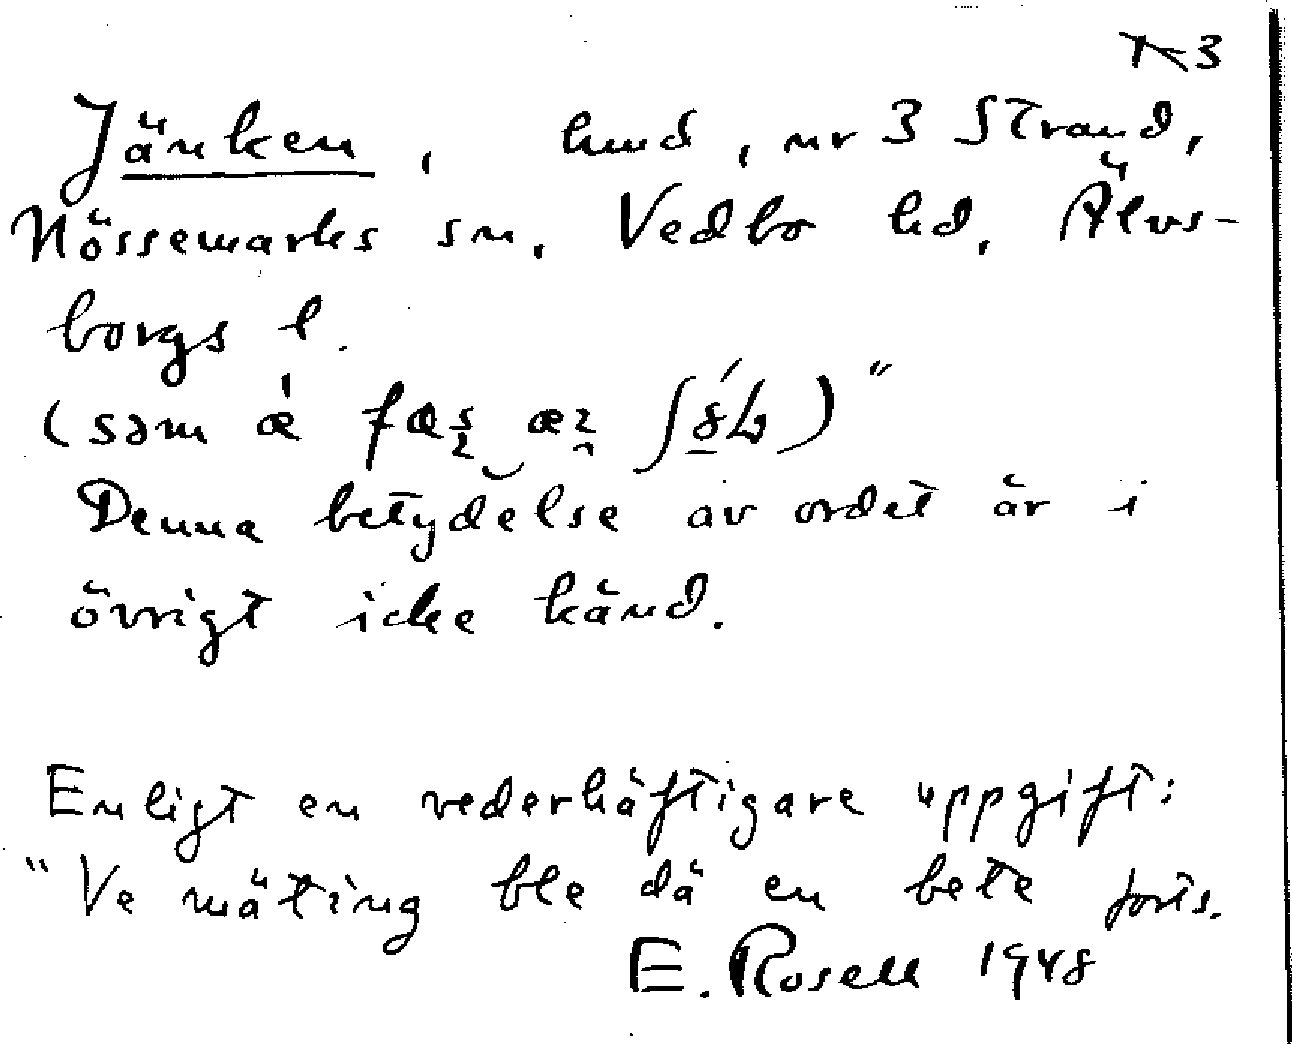 Jänken, hmd, nr 3 Strand,
Nössemarks sn, Vedbo hd, Älvs-
borgs l.
(səm
Denna betydelse av ordet är i
övrigt icke känd.
Enligt en vederhäftigare uppgift:
"Ve mäting ble dä en bete forts.
E. Rosell 1948